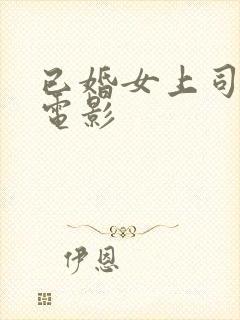 已婚女上司
電影
伊恩